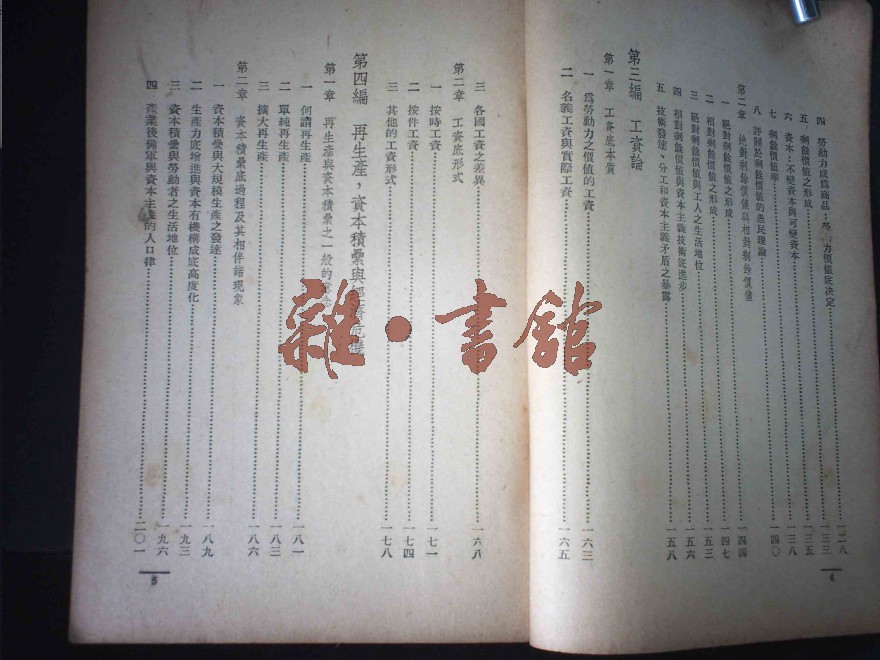 四 勞動力成爲商品;勞力價值底決定……一二八
五 剩餘價值之形成……一三三
六 資本:不變資本與可變資本……一三五
七 剩餘價值率……一三八
八 評關於剩餘價值的愚民理論……一四〇
第二章 絕對剩餘價值與相對剩餘價值
一 絕對剩餘價值之形成……一四四
二 相對剩餘價值之形成……一四七
三 絕對剩餘價值與工人之生活地位……一五三
四 相對剩餘價值與資本主義技術底進步……一五六
五 技術發達、分工和資本主義矛盾之暴露……一五八
第三編 工資論
第一章 工資底本質
一 爲勞動力之價值的工資……一六三
二 名義工資與實際工資……一六五
4
三 各國工資之差異……一六八
第二章 工資底形式
一 按時工資……一七一
二 按件工資……一七四
三 其他的工資形式……一七八
第四編 再生產,資本積纍與
第一章 再生產與資本積纍之一般的
一 何謂再生產……一八一
二 單純再生產……一八三
三 擴大再生產……一八六
第二章 資本積纍底過程及其相伴諸現象
一 資本積纍與大規模生產之發達……一八九
二 生產力底增進與資本有機構成底高度化……一九三
三 資本積纍與勞動者之生活地位……一九六
四 產業後備軍與資本主義的人口律……二〇一
5
雜·書館